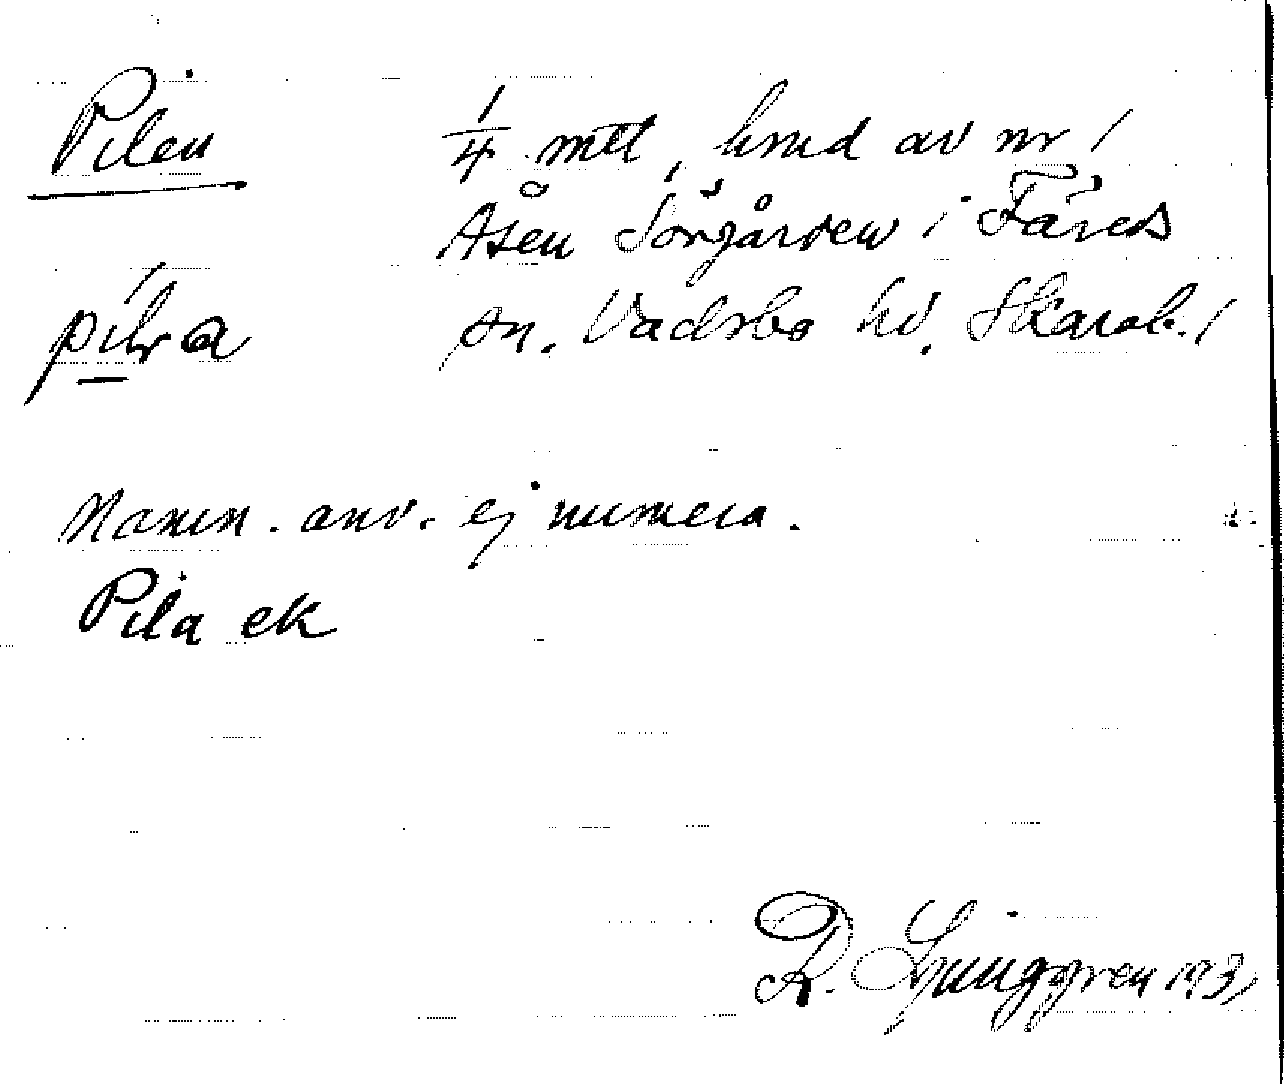 Pilen
1/4 mtl, hmd av nr 1
Åsen Sörgården i Färeds
sn. Vadsbo hd. Skarab. l
Namn. anv. ej numera.
Pila ek
R. Ljunggren 1931